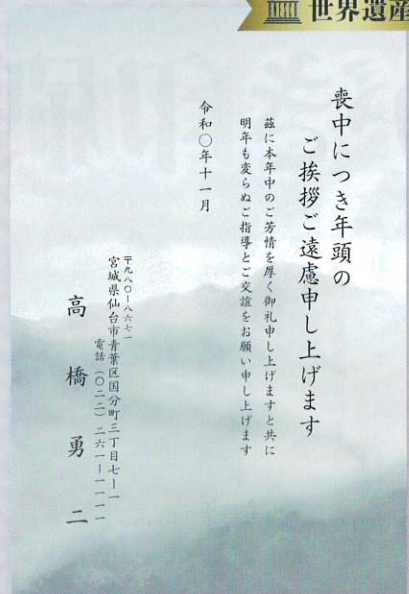 世界遺産
喪中につき年頭の
ご挨拶ご遠慮申し上げます
茲に本年中のご芳情を厚く御礼申し上げますと共に
明年も変らぬご指導とご交誼をお願い申し上げます
令和〇年十一月
〒九八〇-八六七一
宮城県仙台市青葉区国分町三丁目七-一
電話(〇二二)二六一-一一一一
高橋勇二